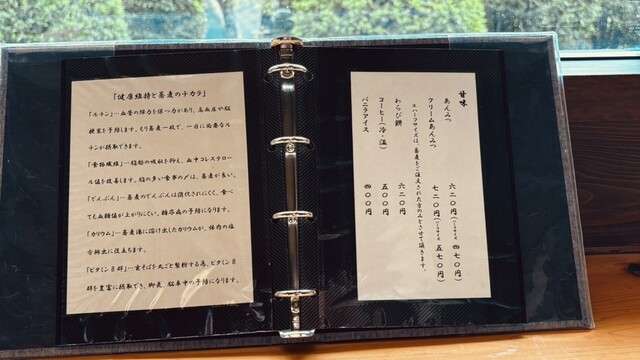 「健康維持と蕎麦のチカラ」
「ルチン」…血管の弾力を保つ力があり、高血圧や脳
梗塞を予防します。もり蕎麦一枚で、一日に必要なル
チンが摂取できます。
「食物繊維」…脂肪の吸収を抑え、血中コレステロー
ル値を改善します。脂の多い食事の〆は、蕎麦が良い。
「でんぷん」…蕎麦のでんぷんは消化されにくく、食べ
ても血糖値が上がりにくい。糖尿病の予防になります。
「カリウム」…蕎麦湯に溶け出したカリウムが、体内の塩
分排出に役立ちます。
「ビタミンB群」…玄そばを丸ごと製粉する為、ビタミンB
群を豊富に摂取でき、脚気、脳卒中の予防になります。
甘味
あんみつ 六二〇円(ハーフサイズ 四七〇円)
クリームあんみつ 七二〇円(ハーフサイズ 五七〇円)
※ハーフサイズは、蕎麦をご注文された方のみとさせて頂きます。
わらび餅 六二〇円
コーヒー(冷・温) 五〇〇円
バニラアイス 四〇〇円